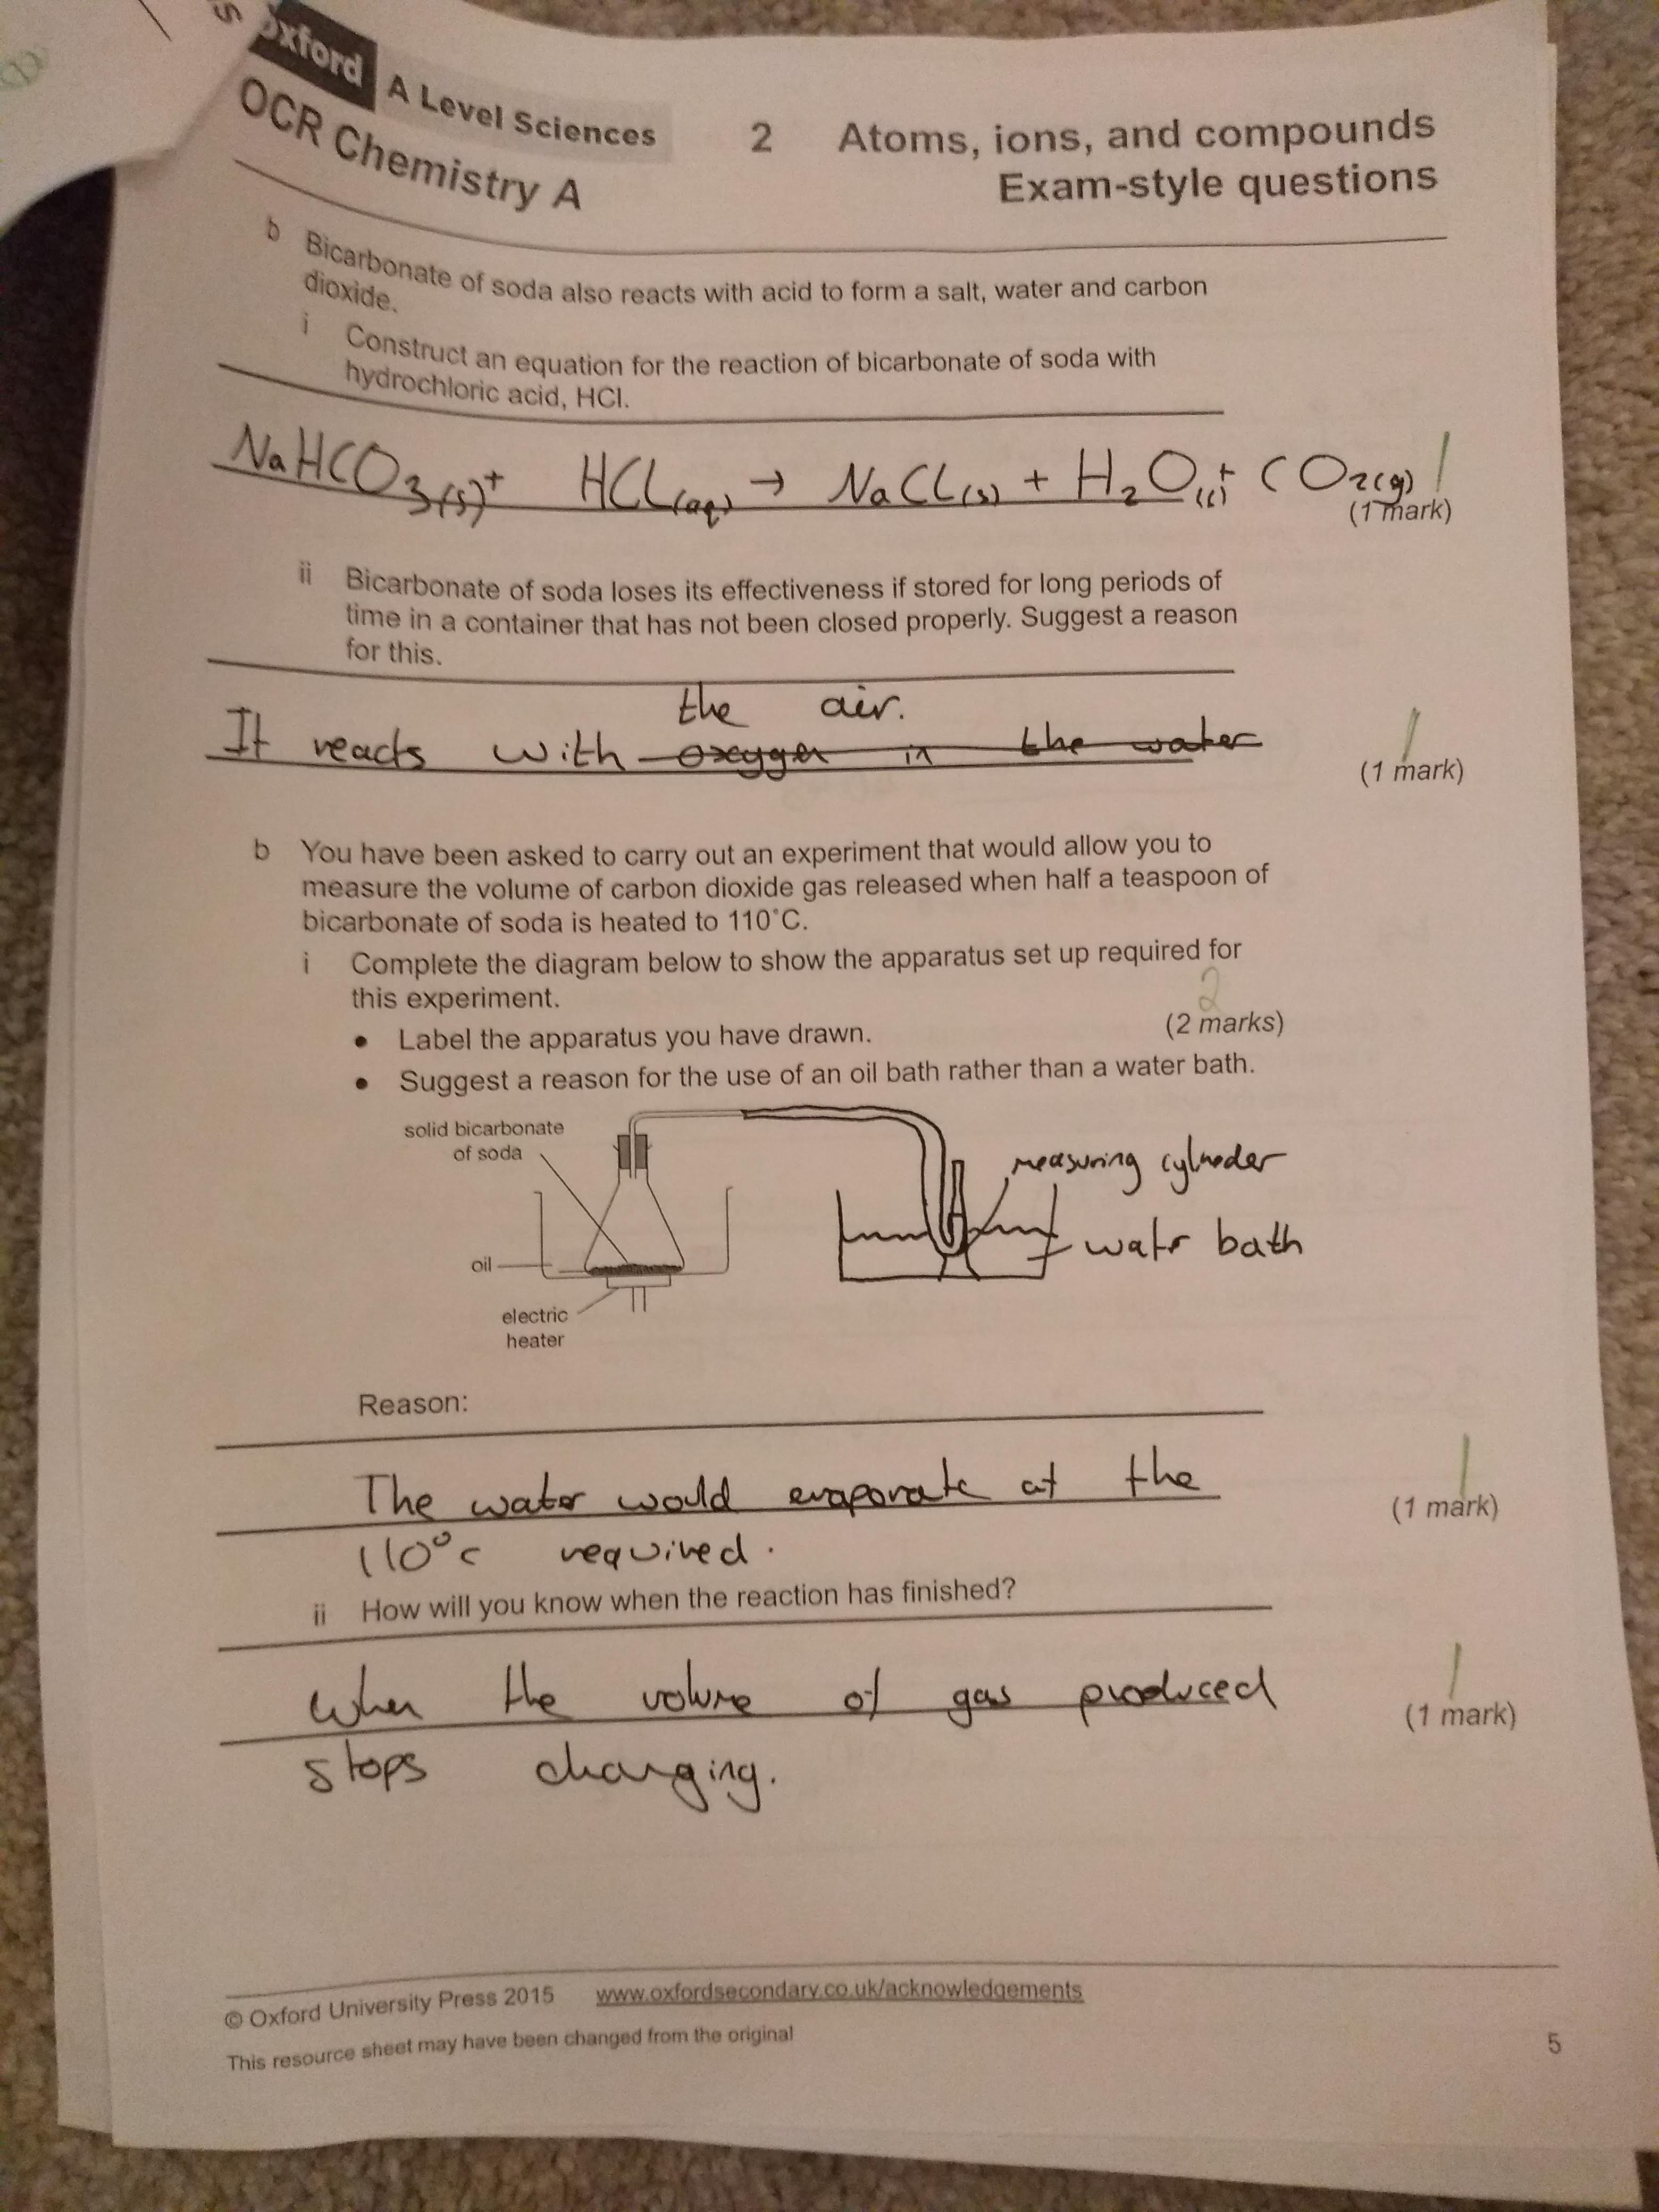 Oxford A Level Sciences
OCR Chemistry A
2 Atoms, ions, and compounds
Exam-style questions
b Bicarbonate of soda also reacts with acid to form a salt, water and carbon
dioxide.
i Construct an equation for the reaction of bicarbonate of soda with
hydrochloric acid, HCl.
NaHCO3(s) + HCl(aq) → NaCl(s) + H2O(l) + CO2(g)
(1 mark)
ii Bicarbonate of soda loses its effectiveness if stored for long periods of
time in a container that has not been closed properly. Suggest a reason
for this.
the air.
It reacts with oxygen in the water
(1 mark)
b You have been asked to carry out an experiment that would allow you to
measure the volume of carbon dioxide gas released when half a teaspoon of
bicarbonate of soda is heated to 110°C.
i Complete the diagram below to show the apparatus set up required for
this experiment.
2
• Label the apparatus you have drawn. (2 marks)
• Suggest a reason for the use of an oil bath rather than a water bath.
solid bicarbonate
of soda
measuring cylinder
water bath
oil
electric
heater
Reason:
The water would evaporate at the
(1 mark)
110°c required.
ii How will you know when the reaction has finished?
when the volume of gas produced
(1 mark)
stops changing.
© Oxford University Press 2015 www.oxfordsecondary.co.uk/acknowledgements
This resource sheet may have been changed from the original
5